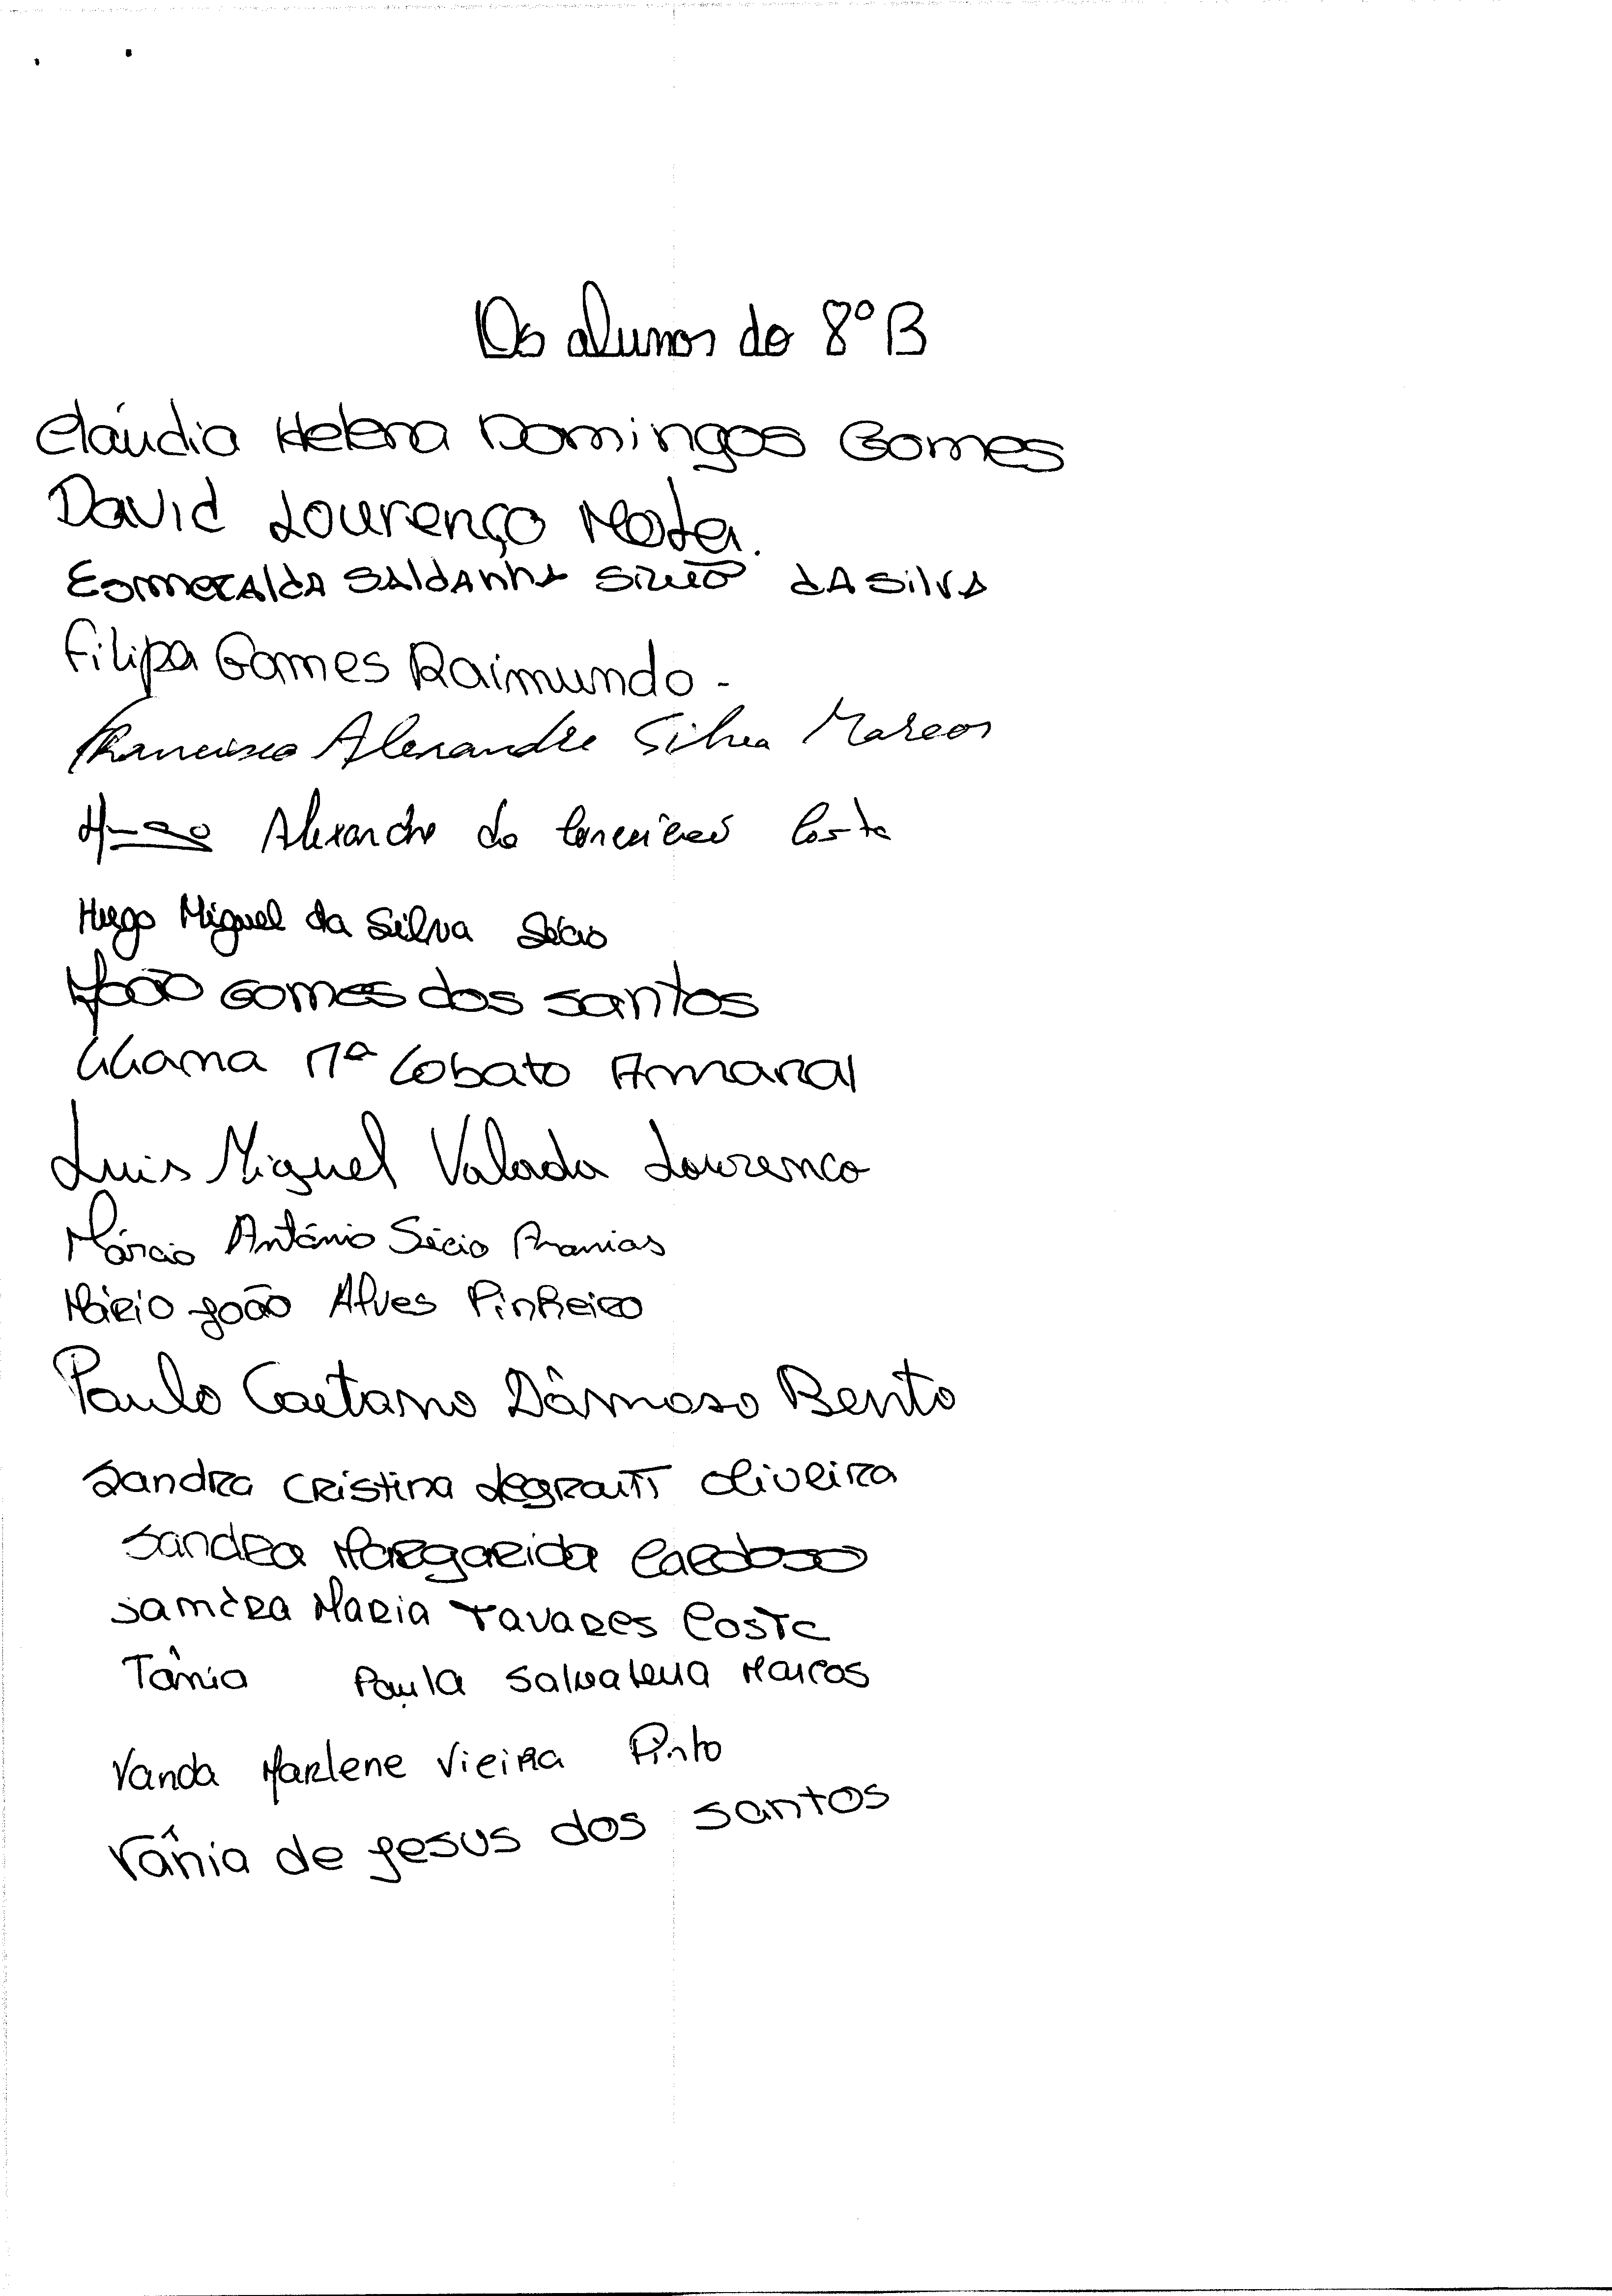 Os alunos do 8º B
Cláudia Helena Domingos Gomes
David Lourenço Mota.
Esmeralda Saldanha Simão da Silva
Filipa Gomes Raimundo -
Francisco Alexandre Silva Marcos
Alexandre da Costa
Hugo Miguel da Silva
João Gomes dos Santos
Liliana Mª Lobato Amaral
Luis Miguel Valada Lourenco
Márcio António Sécio Ananias
Mário João Alves Pinheiro
Paulo Caetano Dâmaso Bento
Sandra Cristina Oliveira
Sandra Margarida Cardoso
Sandra Maria Tavares Costa
Tânia Paula Marcos
Vanda Marlene Vieira Pinto
Vânia de Jesus dos Santos